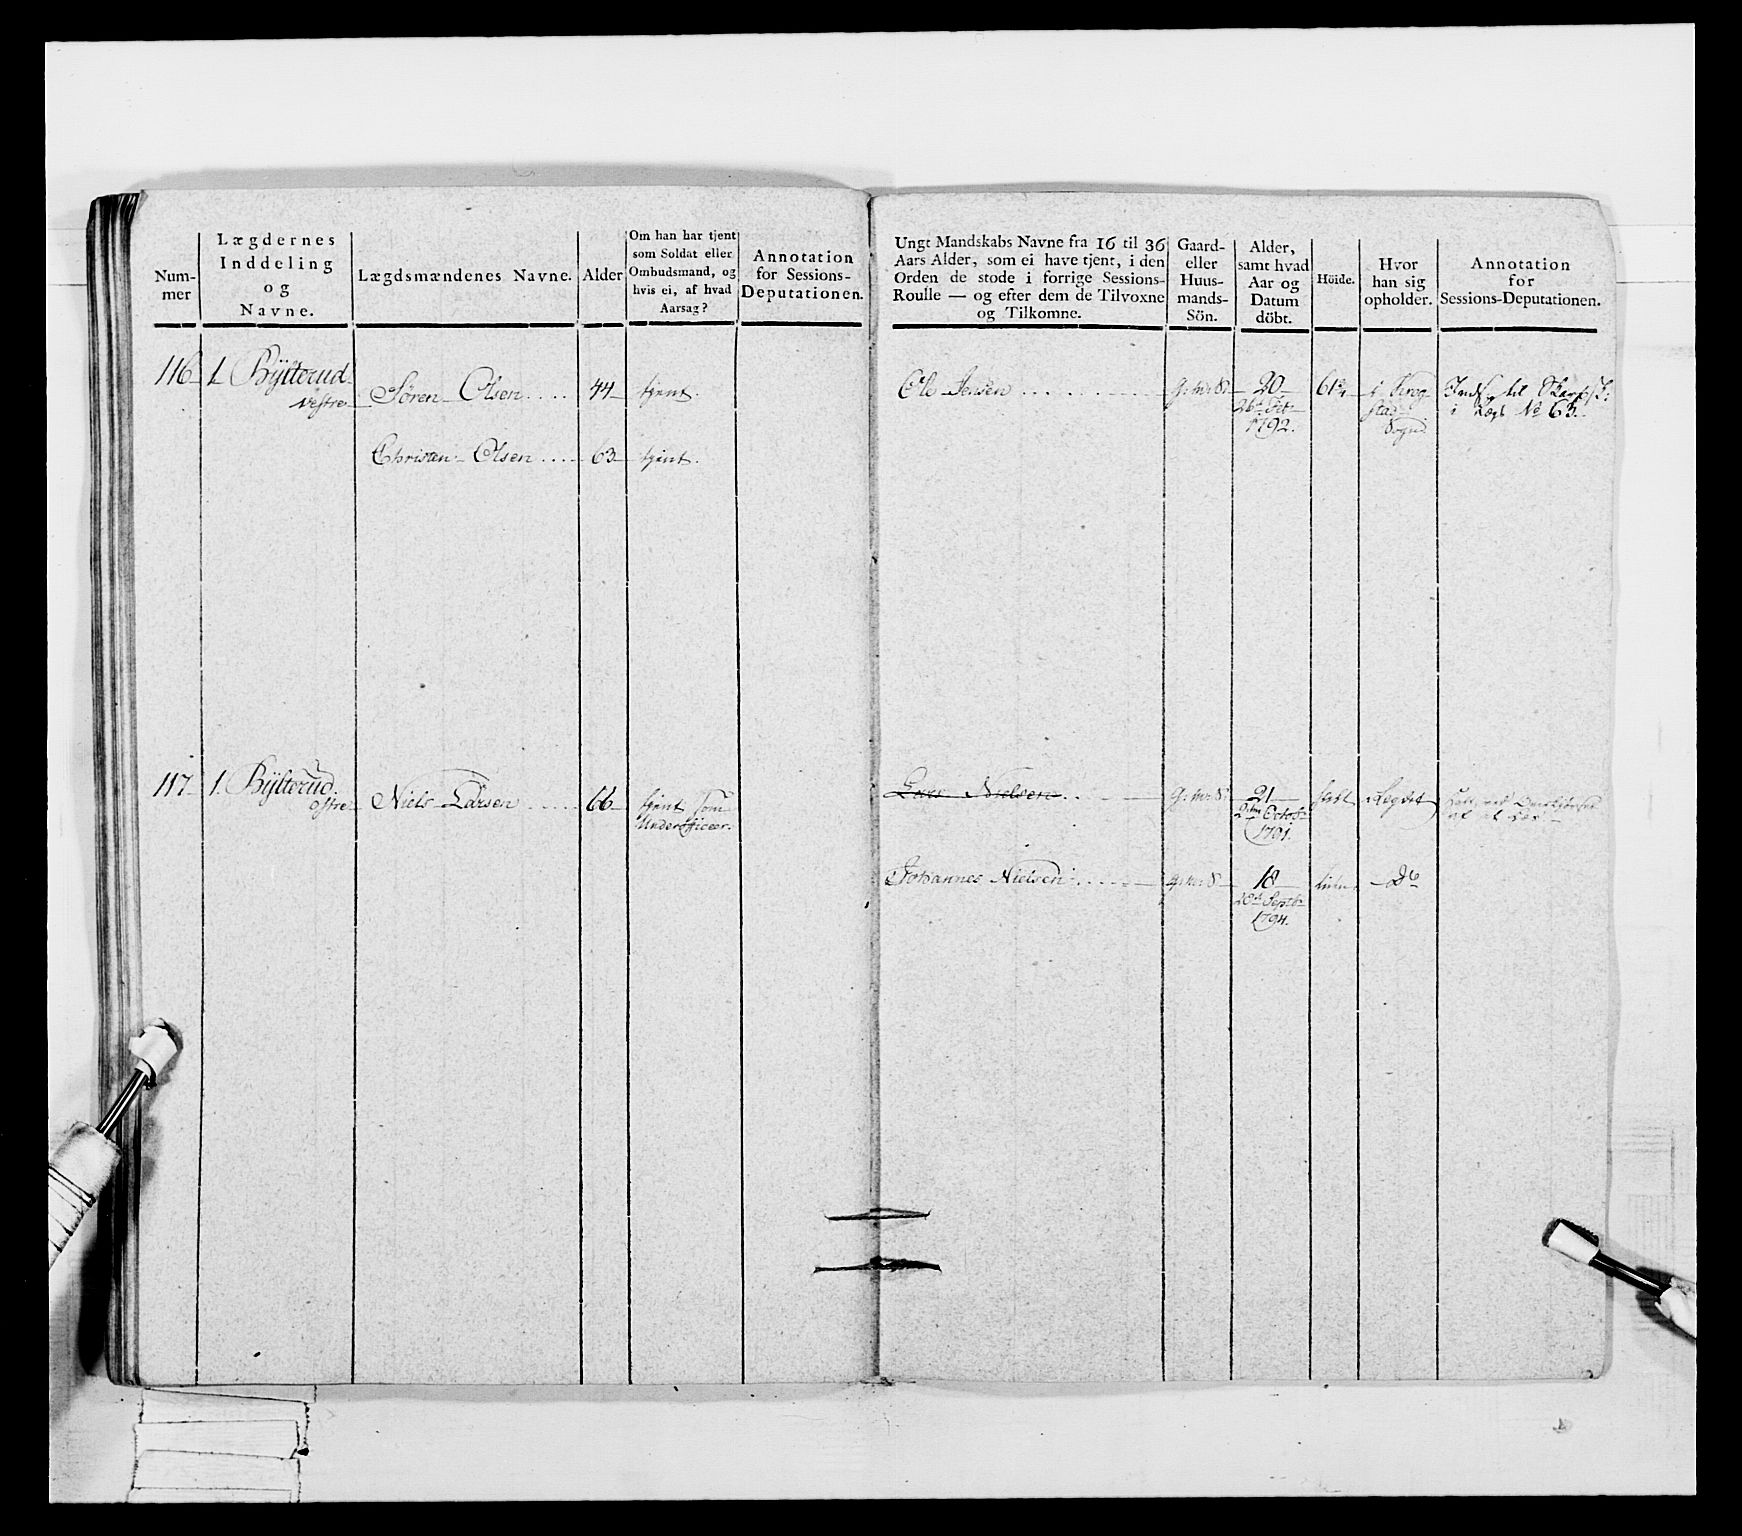 Num-
mer
Lægdernes
Inddeling
og
Navne.
Lægdsmændenes Navne.
Alder
Om han har tjent
som Soldat eller
Ombudsmand, og
hvis ei, af hvad
Aarsag?
Annotation
for Sessions-
Deputationen.
116
1. Bÿlterud
Vestre
Søren Olsen
44
tjent.
Christen Olsen
63
tjent.
117
1. Bÿlterud.
Østre
Niels Larsen
66
tjent som
Underofficeer.
Ungt Mandskabs Navne fra 16 til 36
Aars Alder, som ei have tjent, i den
Orden de stode i forrige Sessions-
Roulle — og efter dem de Tilvoxne
og Tilkomne.
Gaard-
eller
Huus-
mands-
Sön.
Alder,
samt hvad
Aar og
Datum
döbt.
Höide.
Hvor
han sig
opholder.
Annotation
for
Sessions-Deputationen.
Ole Jensen
G: m: S:
20
26de
1792.
i Krog
stad
Sogn
til
i Lægd No 63.
Lars Nielsen
G: m: S:
21
Octob
1791.
Lægdet
Johannes Nielsen
G: m: S
18
Septb
1794.
liden
Do